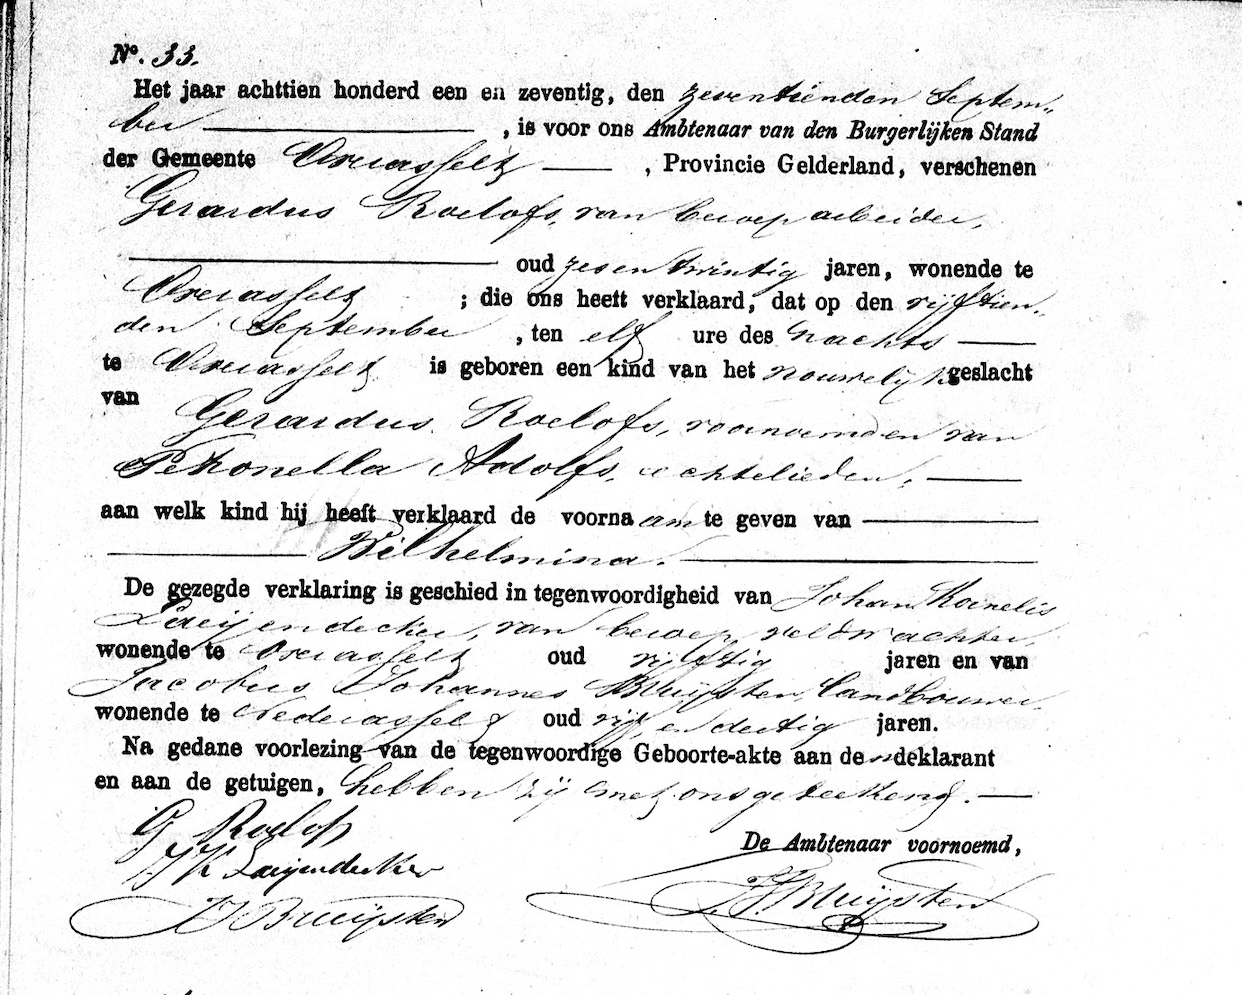 No. 33.
Het jaar achttien honderd een en zeventig, den zeventienden Septem-
ber , is voor ons Ambtenaar van den Burgerlijken Stand
der Gemeente Overasselt , Provincie Gelderland, verschenen
Gerardus Roelofs, van beroep arbeider,
oud zesentwintig jaren, wonende te
Overasselt ; die ons heeft verklaard, dat op den vijftien-
den September , ten elf ure des nachts
te Overasselt is geboren een kind van het vrouwelijk geslacht
van Gerardus Roelofs, voornoemden van
Petronella Adolfs, echtelieden,
aan welk kind hij heeft verklaard de voornaam te geven van
Wilhelmina.
De gezegde verklaring is geschied in tegenwoordigheid van Johan Kornelis
Laeijendecker, van beroep veldwachter,
wonende te Overasselt oud vijftig jaren en van
Jacobus Johannes Bruijsten, landbouwer,
wonende te Nederasselt oud vijf en dertig jaren.
Na gedane voorlezing van de tegenwoordige Geboorte-akte aan den deklarant
en aan de getuigen, hebben zij met ons geteekend.
G Roelofs
De Ambtenaar voornoemd,
JK Laeijendecker
JJ Bruijsten
Bruijsten